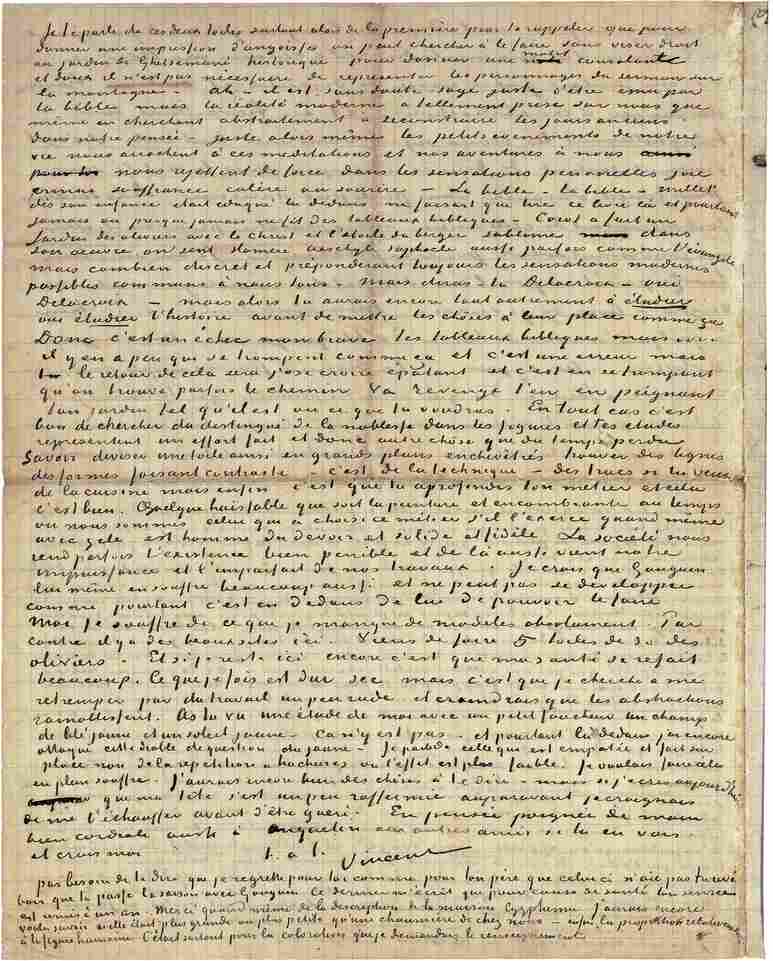 Je te parle de ces deux toiles surtout alors de la première pour te rappeler que pour
donner une impression d'angoisse on peut chercher à le faire sans viser droit
au jardin de Ghetsemané historique pour donner une motif consolante
et doux il n'est pas nécessaire de représenter les personnages du sermon sur
la montagne – Ah – il est sans doute sage juste d'être ému par
la bible mais la réalité moderne a tellement prise sur nous que
même en cherchant abstraitement à reconstruire les jours anciens
dans notre pensée – juste alors même les petits événements de notre
vie nous arrachent à ces méditations et nos aventures à nous
nous rejettent de force dans les sensations personelles joie
ennui souffrance colère ou sourire – La bible – la bible – Millet
dès son enfance était éduqué là dedans ne faisait que lire ce livre là et pourtant
jamais ou presque jamais ne fit des tableaux bibliques – Corot a fait un
Jardin des oliviers avec le Christ et l'étoile du berger sublime dans
son oeuvre on sent Homère Aeschyle Sophocle aussi parfois comme l'évangile
mais combien discret et prépondérant toujours les sensations modernes
possibles communes à nous tous – Mais diras-tu Delacroix – oui
Delacroix – mais alors tu aurais encore tout autrement à étudier
oui étudier l'histoire avant de mettre les choses à leur place comme ça
Donc c'est un échec mon brave les tableaux bibliques mais –
il y en a peu qui se trompent comme ça et c'est une erreur mais
le retour de cela sera j'ose croire épatant et c'est en se trompant
qu'on trouve parfois le chemin Va revenge t'en en peignant
ton jardin tel qu'il est ou ce que tu voudras. En tout cas c'est
bon de chercher du distingué de la noblesse dans les figures et tes études
représentent un effort fait et donc autre chose que du temps perdu
Savoir diviser une toile ainsi en grands plans enchevêtrés trouver des lignes
des formes faisant contraste – c'est de la technique – des trucs si tu veux
de la cuisine mais enfin c'est que tu aprofondis ton métier et cela
c'est bien. Quelque haissable que soit la peinture et encombrante au temps
où nous sommes celui qui a choisi ce métier s'il l'exerce quand même
avec zèle est homme du devoir et solide et fidèle La société nous
rend parfois l'existence bien penible et de là aussi vient notre
impuissance et l'imparfait de nos travaux. Je crois que Gauguin
lui même en souffre beaucoup aussi et ne peut pas se développer
comme pourtant c'est en dedans de lui de pouvoir le faire
Moi je souffre de ce que je manque de modèles absolument. Par
contre il y a des beaux sites ici. Viens de faire 5 toiles de 30 des
oliviers. Et si je reste ici encore c'est que ma santé se refait
beaucoup. Ce que je fais est dur sec mais c'est que je cherche à me
retremper par du travail un peu rude et craindrais que les abstractions
ramollissent. As tu vu une étude de moi avec un petit faucheur un champs
de blé jaune et un soleil jaune – Ça n'y est pas – et pourtant là dedans j'ai encore
attaqué cette diable de question du jaune – Je parle de celle qui est empatée et fait sur
place non de la répétition à hachures où l'effet est plus faible. Je voulais faire cela
en plein souffre. J'aurais encore bien des choses à te dire – mais si j'écris aujourd'hui
que ma tête s'est un peu raffermie auparavant je craignais
de me l'échauffer avant d'être guéri. En pensée poignée de main
bien cordiale aussi à Anquetin aux autres amis si tu en vois.
et crois moi t. à t. Vincent
pas besoin de te dire que je regrette pour toi comme pour ton père que celui ci n'ait pas trouvé
bon que tu passe la saison avec Gauguin. Ce dernier m'écrit que pour cause de santé ton service
est remis à un an. Merci quand même de la description de la maison Egyptienne J'aurais encore
voulu savoir si elle était plus grande ou plus petite qu'une chaumière de chez nous – enfin la proportion relativement
à la figure humaine. C'était surtout pour la coloration que je demandais le renseignement